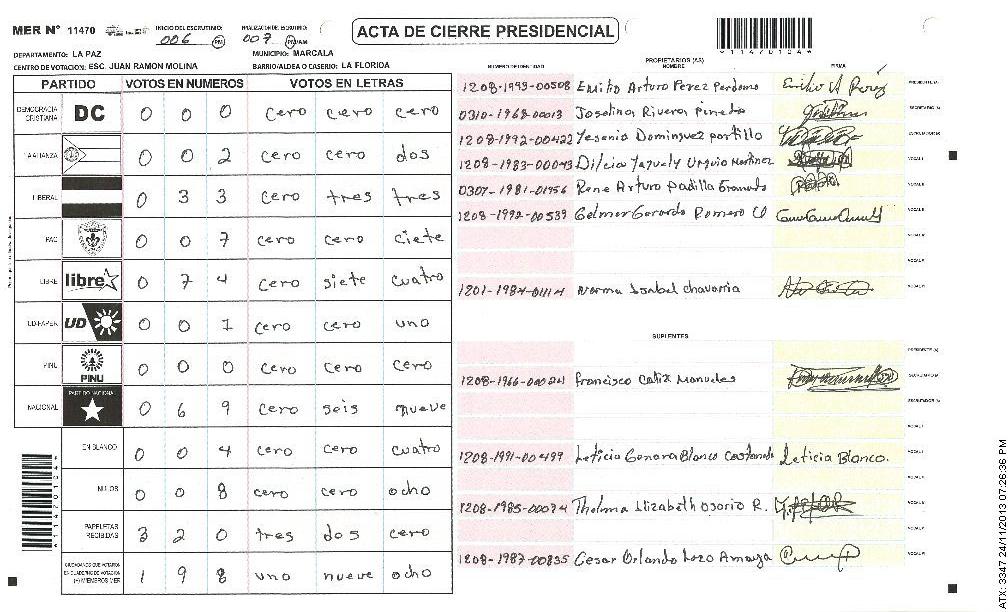 MER Nº 11470
INICIO DEL ESCRUTINIO: 006 PM
FINALIZACION DEL ESCRUTINIO: 007 PM/AM
ACTA DE CIERRE PRESIDENCIAL
DEPARTAMENTO: LA PAZ
MUNICIPIO: MARCALA
CENTRO DE VOTACION: ESC. JUAN RAMON MOLINA
BARRIO/ALDEA O CASERIO: LA FLORIDA
PARTIDO VOTOS EN NUMEROS VOTOS EN LETRAS
DEMOCRACIA CRISTIANA DC 0 0 0 cero cero cero
LA ALIANZA 0 0 2 cero cero dos
LIBERAL 0 3 3 cero tres tres
PAC 0 0 7 cero cero ciete
LIBRE libre 0 7 4 cero siete cuatro
UD-FAPER UD 0 0 1 cero cero uno
PINU PINU 0 0 0 cero cero cero
NACIONAL PARTIDO NACIONAL 0 6 9 cero seis nueve
EN BLANCO 0 0 4 cero cero cuatro
NULOS 0 0 8 cero cero ocho
PAPELETAS RECIBIDAS 3 2 0 tres dos cero
CIUDADANOS QUE VOTARON EN CUADERNO DE VOTACION (+) MIEMBROS MER 1 9 8 uno nueve ocho
PROPIETARIOS (AS)
NUMERO DE IDENTIDAD NOMBRE FIRMA
1208-1993-00508 Emilio Arturo Perez Perdomo Emilio A Perez PRESIDENTE (A)
0310-1968-00013 Josolina Rivera Pineda SECRETARIO (A)
1208-1992-00422 Yesenia Dominguez portillo ESCRUTADOR (A)
1208-1983-00043 Dilcia Yaquely Urquia Martinez VOCAL I
0307-1981-01956 Rene Arturo Padilla Granado VOCAL II
1208-1992-00539 Gelmer Gerardo Romero VOCAL III
VOCAL IV
VOCAL V
1201-1984-01114 Norma Isabel chavarria VOCAL VI
SUPLENTES
PRESIDENTE (A)
1208-1966-00024 Francisco Calix SECRETARIO (A)
ESCRUTADOR (A)
VOCAL I
1208-1991-00499 Leticia Genara Blanco Castaneda Leticia Blanco.
1208-1985-00074 Thelma Elizabeth Osorio R.
1208-1987-00835 Cesar Orlando Lozo Amaya
ATX: 3347 24/11/2013 07:26:36 PM